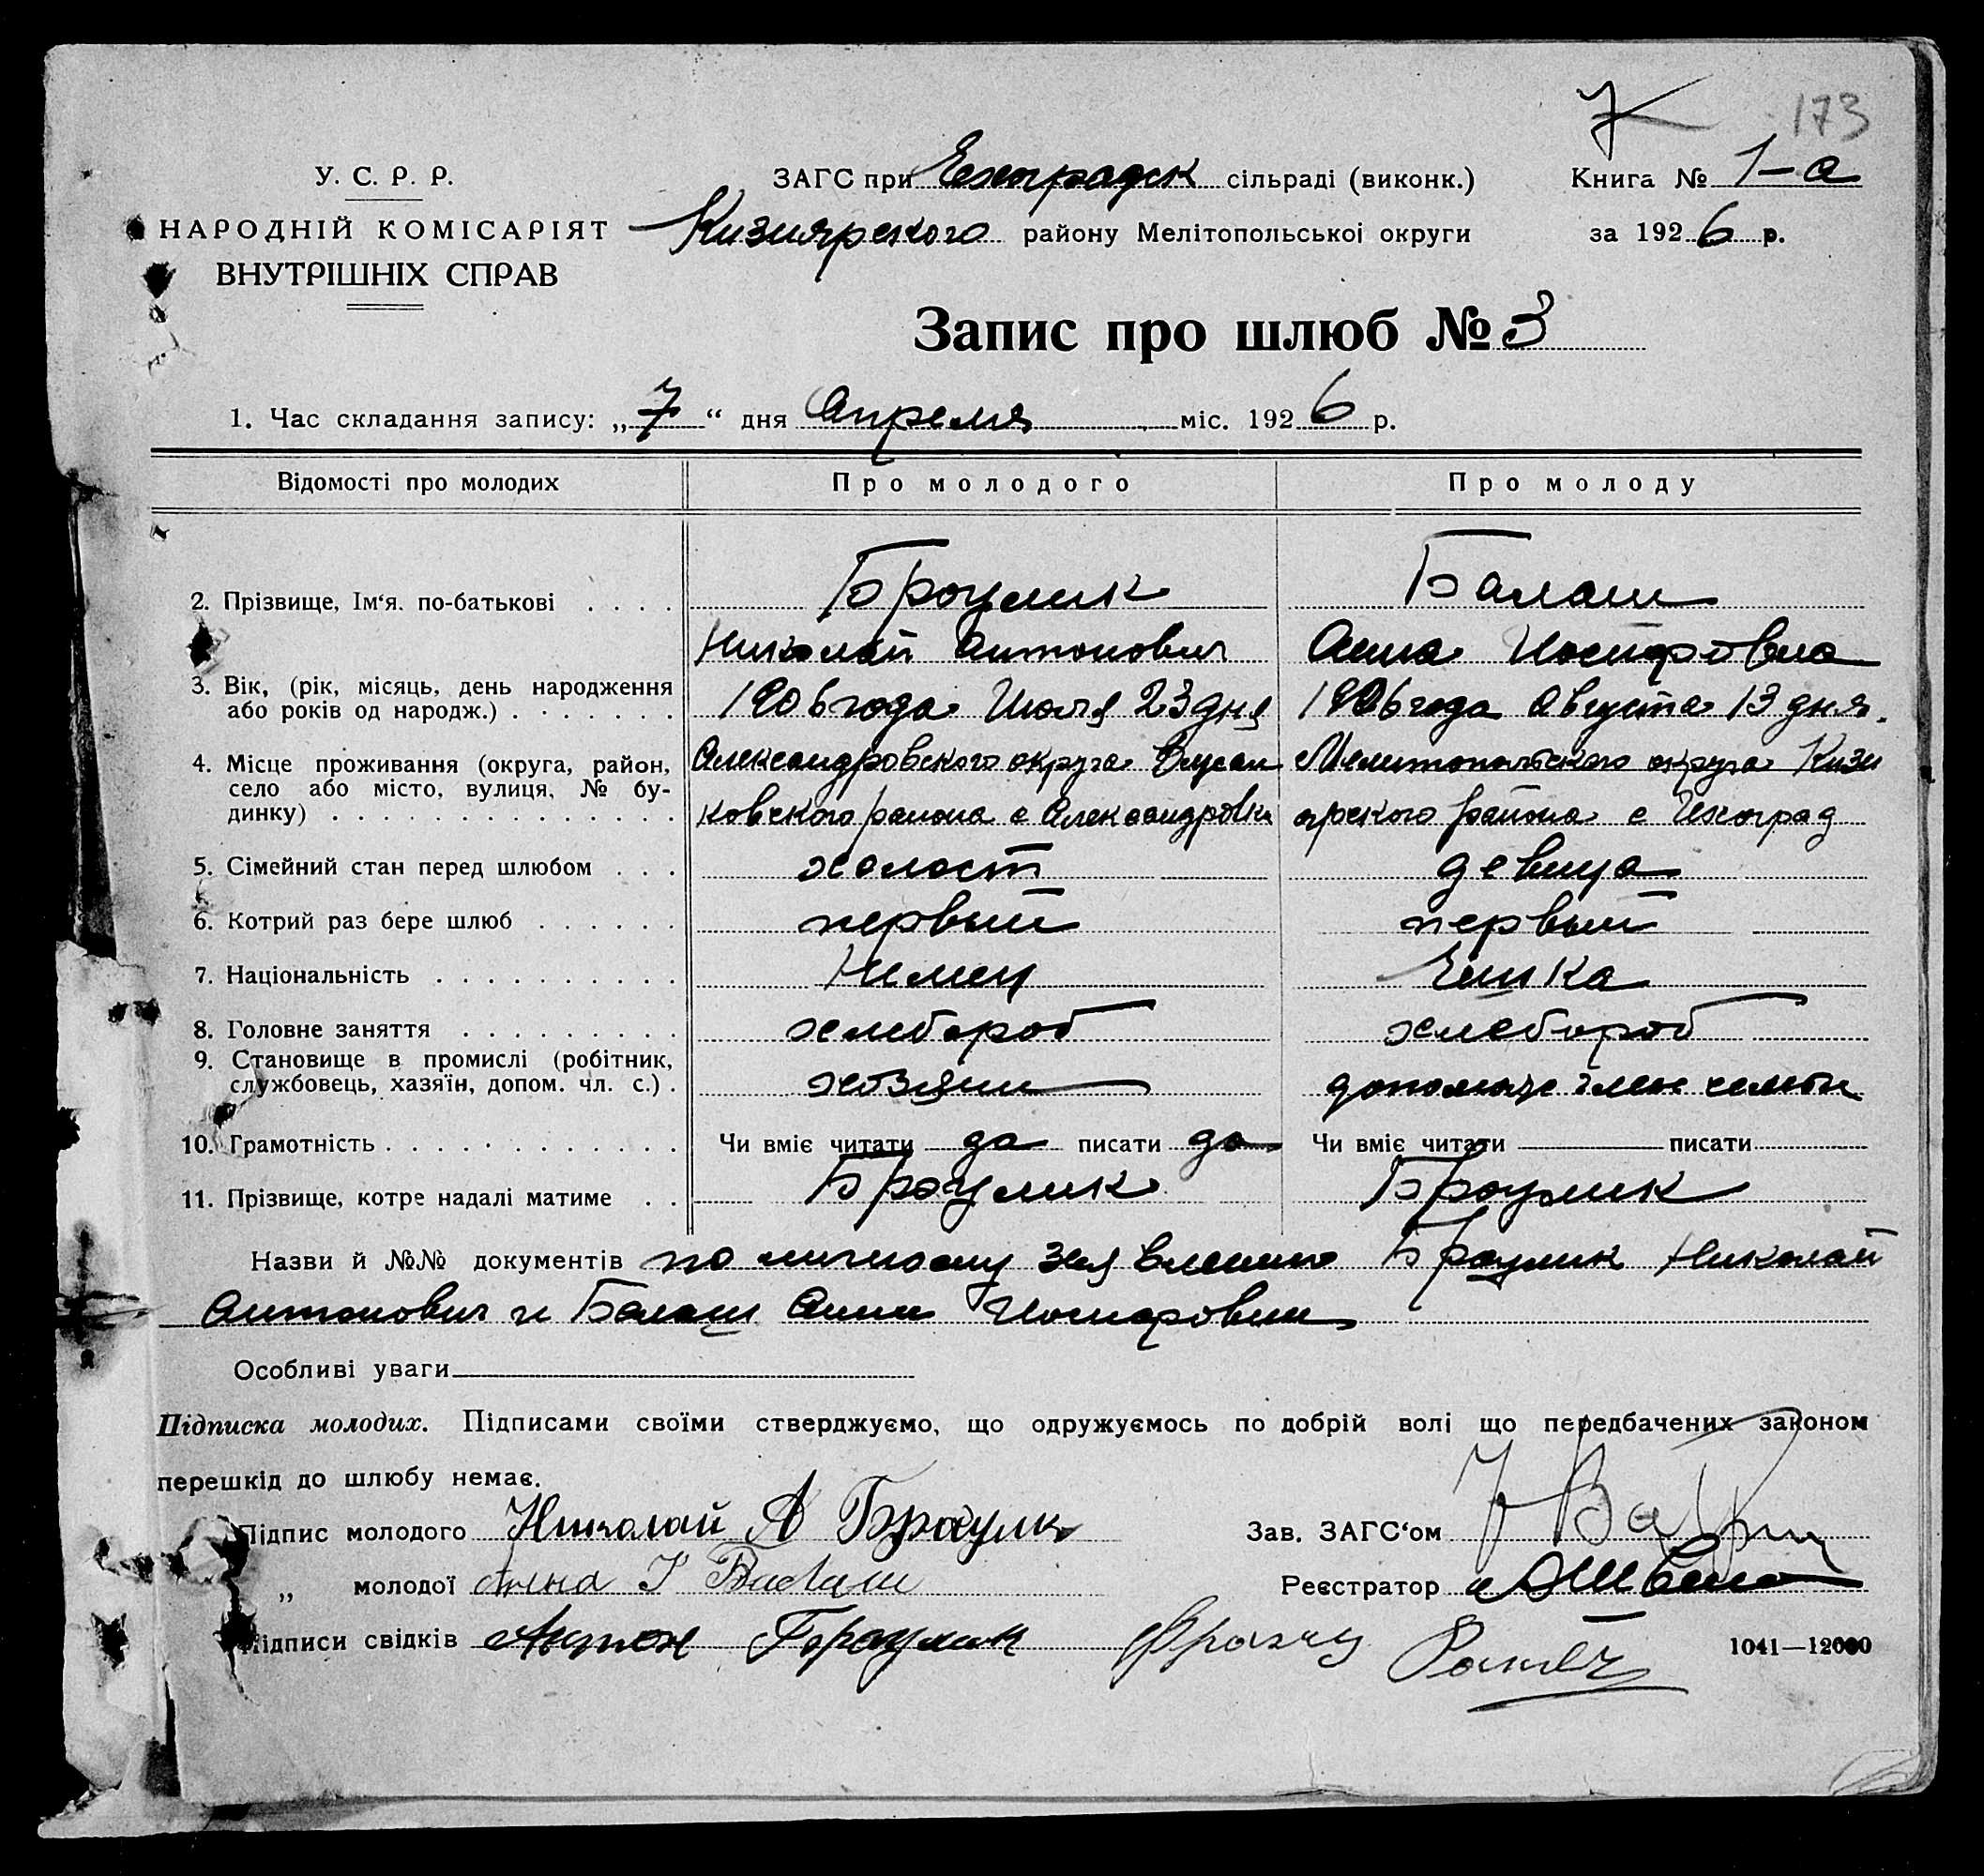 173
У. С. Р. Р.
ЗАГС при Чехоградск сільраді (виконк.)
Книга № 1-а
НАРОДНІЙ КОМІСАРІЯТ
Кизиярского району Мелітопольської округи
за 1926 р.
ВНУТРІШНІХ СПРАВ
Запис про шлюб № 3
1. Час складання запису: „7“ дня Апреля міс. 1926 р.
Відомості про молодих
Про молодого
Про молоду
2. Прізвище, Ім‘я. по-батькові . . . .
Броулик
Балаш
Николай Антонович
Анна Иосифовна
3. Вік, (рік, місяць, день народження
або років од народж.) . . . . . . .
1906 года Июля 23 дня
1906 года Августа 13 дня.
4. Місце проживання (округа, район,
село або місто, вулиця, № бу-
динку) . . . . . . . . . . . . . .
Александровского округа
Мелитопольского округа Кизи
ковского района с Александровки
ярского района с Чехоград
5. Сімейний стан перед шлюбом . . .
холост
девица
6. Котрий раз бере шлюб . . . . . .
первый
первый
7. Національність . . . . . . . . . .
Немец
Чешка
8. Головне заняття . . . . . . . . .
хлебороб
хлебороб
9. Становище в промислі (робітник,
службовець, хазяїн, допом. чл. с.) .
хозяин
член семьи
10. Грамотність . . . . . . . . . . . .
Чи вміє читати да писати да
Чи вміє читати — писати
11. Прізвище, котре надалі матиме . .
Броулик
Броулик
Назви й №№ документів по личному заявлению Броулик Николай
Антонович и Балаш Анни Иосифовни
Особливі уваги
Підписка молодих. Підписами своїми стверджуємо, що одружуємось по добрій волі що передбачених законом
перешкід до шлюбу немає.
Підпис молодого Николай А Броулик
Зав. ЗАГС‘ом
„ молодої Анна І Балаш
Реєстратор
Підписи свідків Антон Броулик Франц
1041—12000